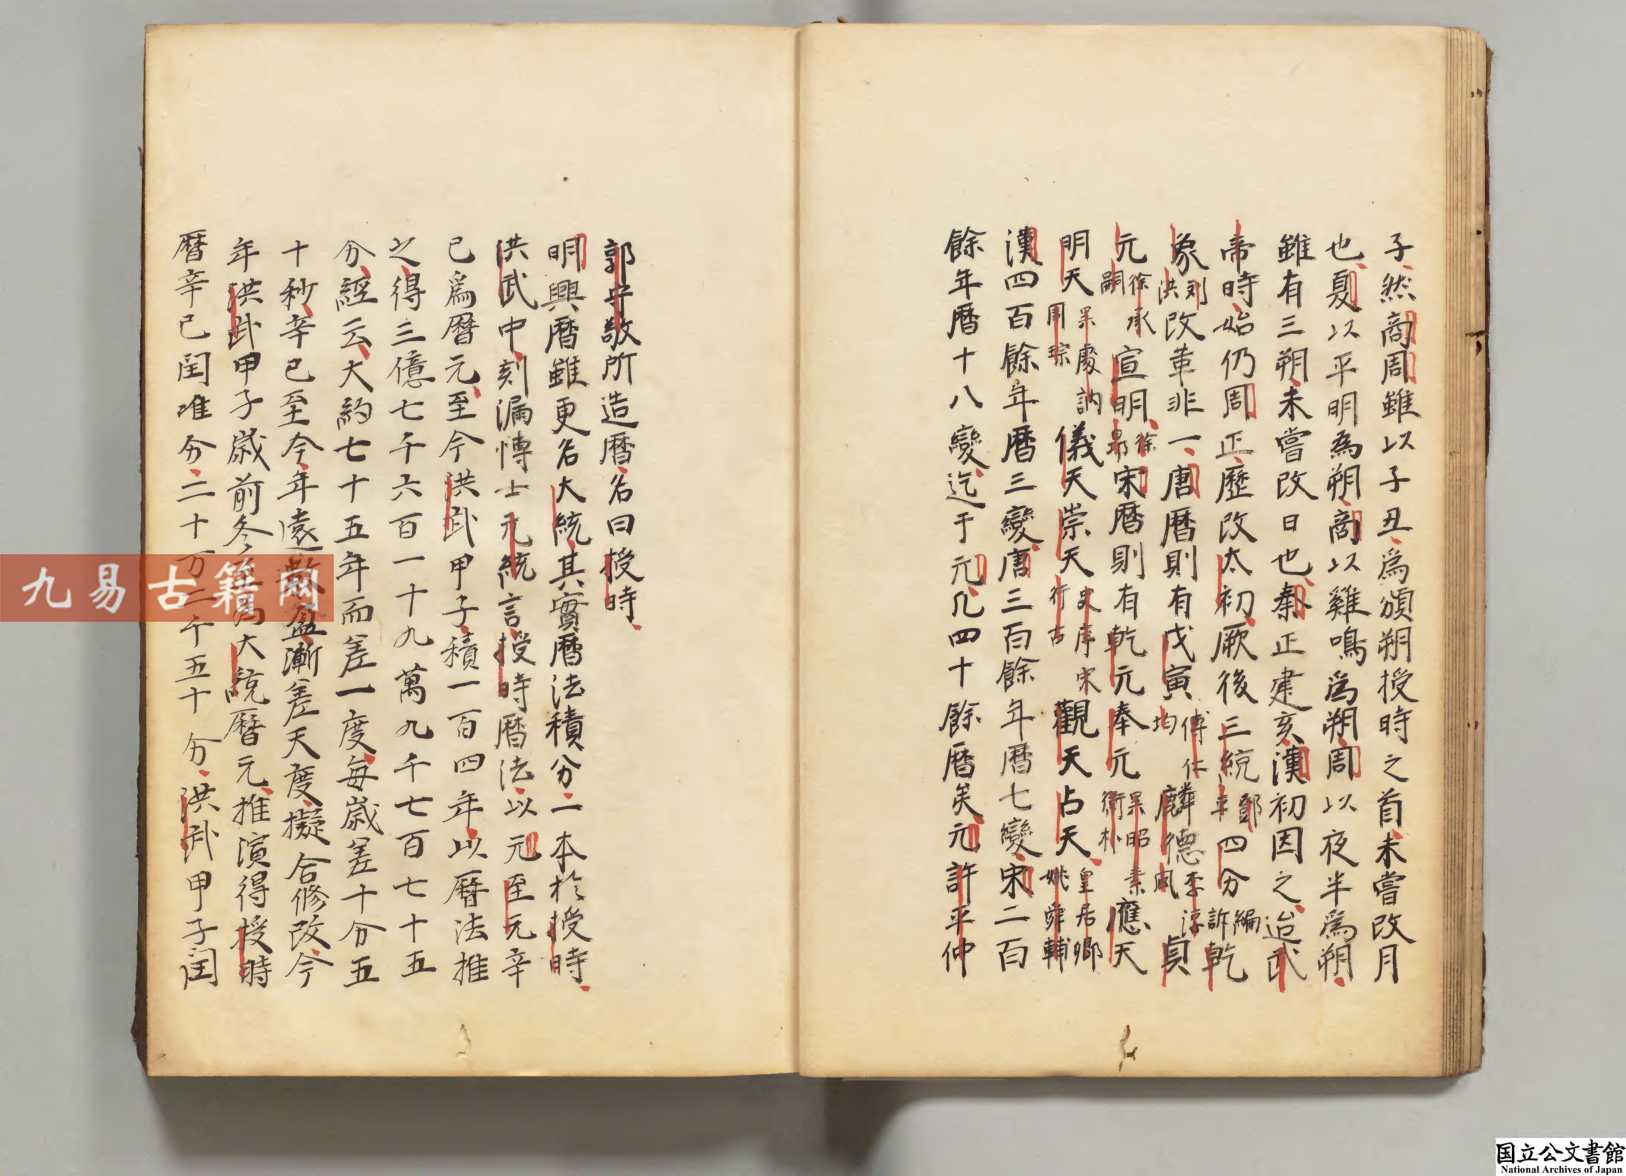 子然商周雖以子丑為頒朔授時之首未嘗改月
也夏以平明為朔商以雞鳴為朔周以夜半為朔
雖有三朔未嘗改日也秦正建亥漢初因之迨武
帝時始仍周正歷改太初厥後三統鄒平四分編訢乾
象刘洪改革非一唐曆則有戊寅傅仁均麟德李淳風貞
元徐承嗣宣明徐昻宋曆則有乾元奉元吴昭素衛朴應天
明天吴處訥周琮儀天崇天史序宋行古觀天占天皇居卿姚舜輔
漢四百餘年曆三變唐三百餘年曆七變宋二百
餘年曆十八變迄于元凡四十餘曆矣元許平仲
郭守敬所造曆名曰授時
明興曆雖更名大統其實曆法積分一本於授時
洪武中刻漏博士元統言授時曆法以元至元辛
巳爲曆元至今洪武甲子積一百四年以曆法推
之得三億七千六百一十九萬九千七百七十五
分經云大約七十五年而差一度每歲差十分五
十秒辛巳至今年遠數盈漸差天度擬合修改今
年洪武甲子歲前冬至為大統曆元推演得授時
曆辛巳閏准分二十万二千五十分洪武甲子閏
九易古籍网
国立公文書館
National Archives of Japan